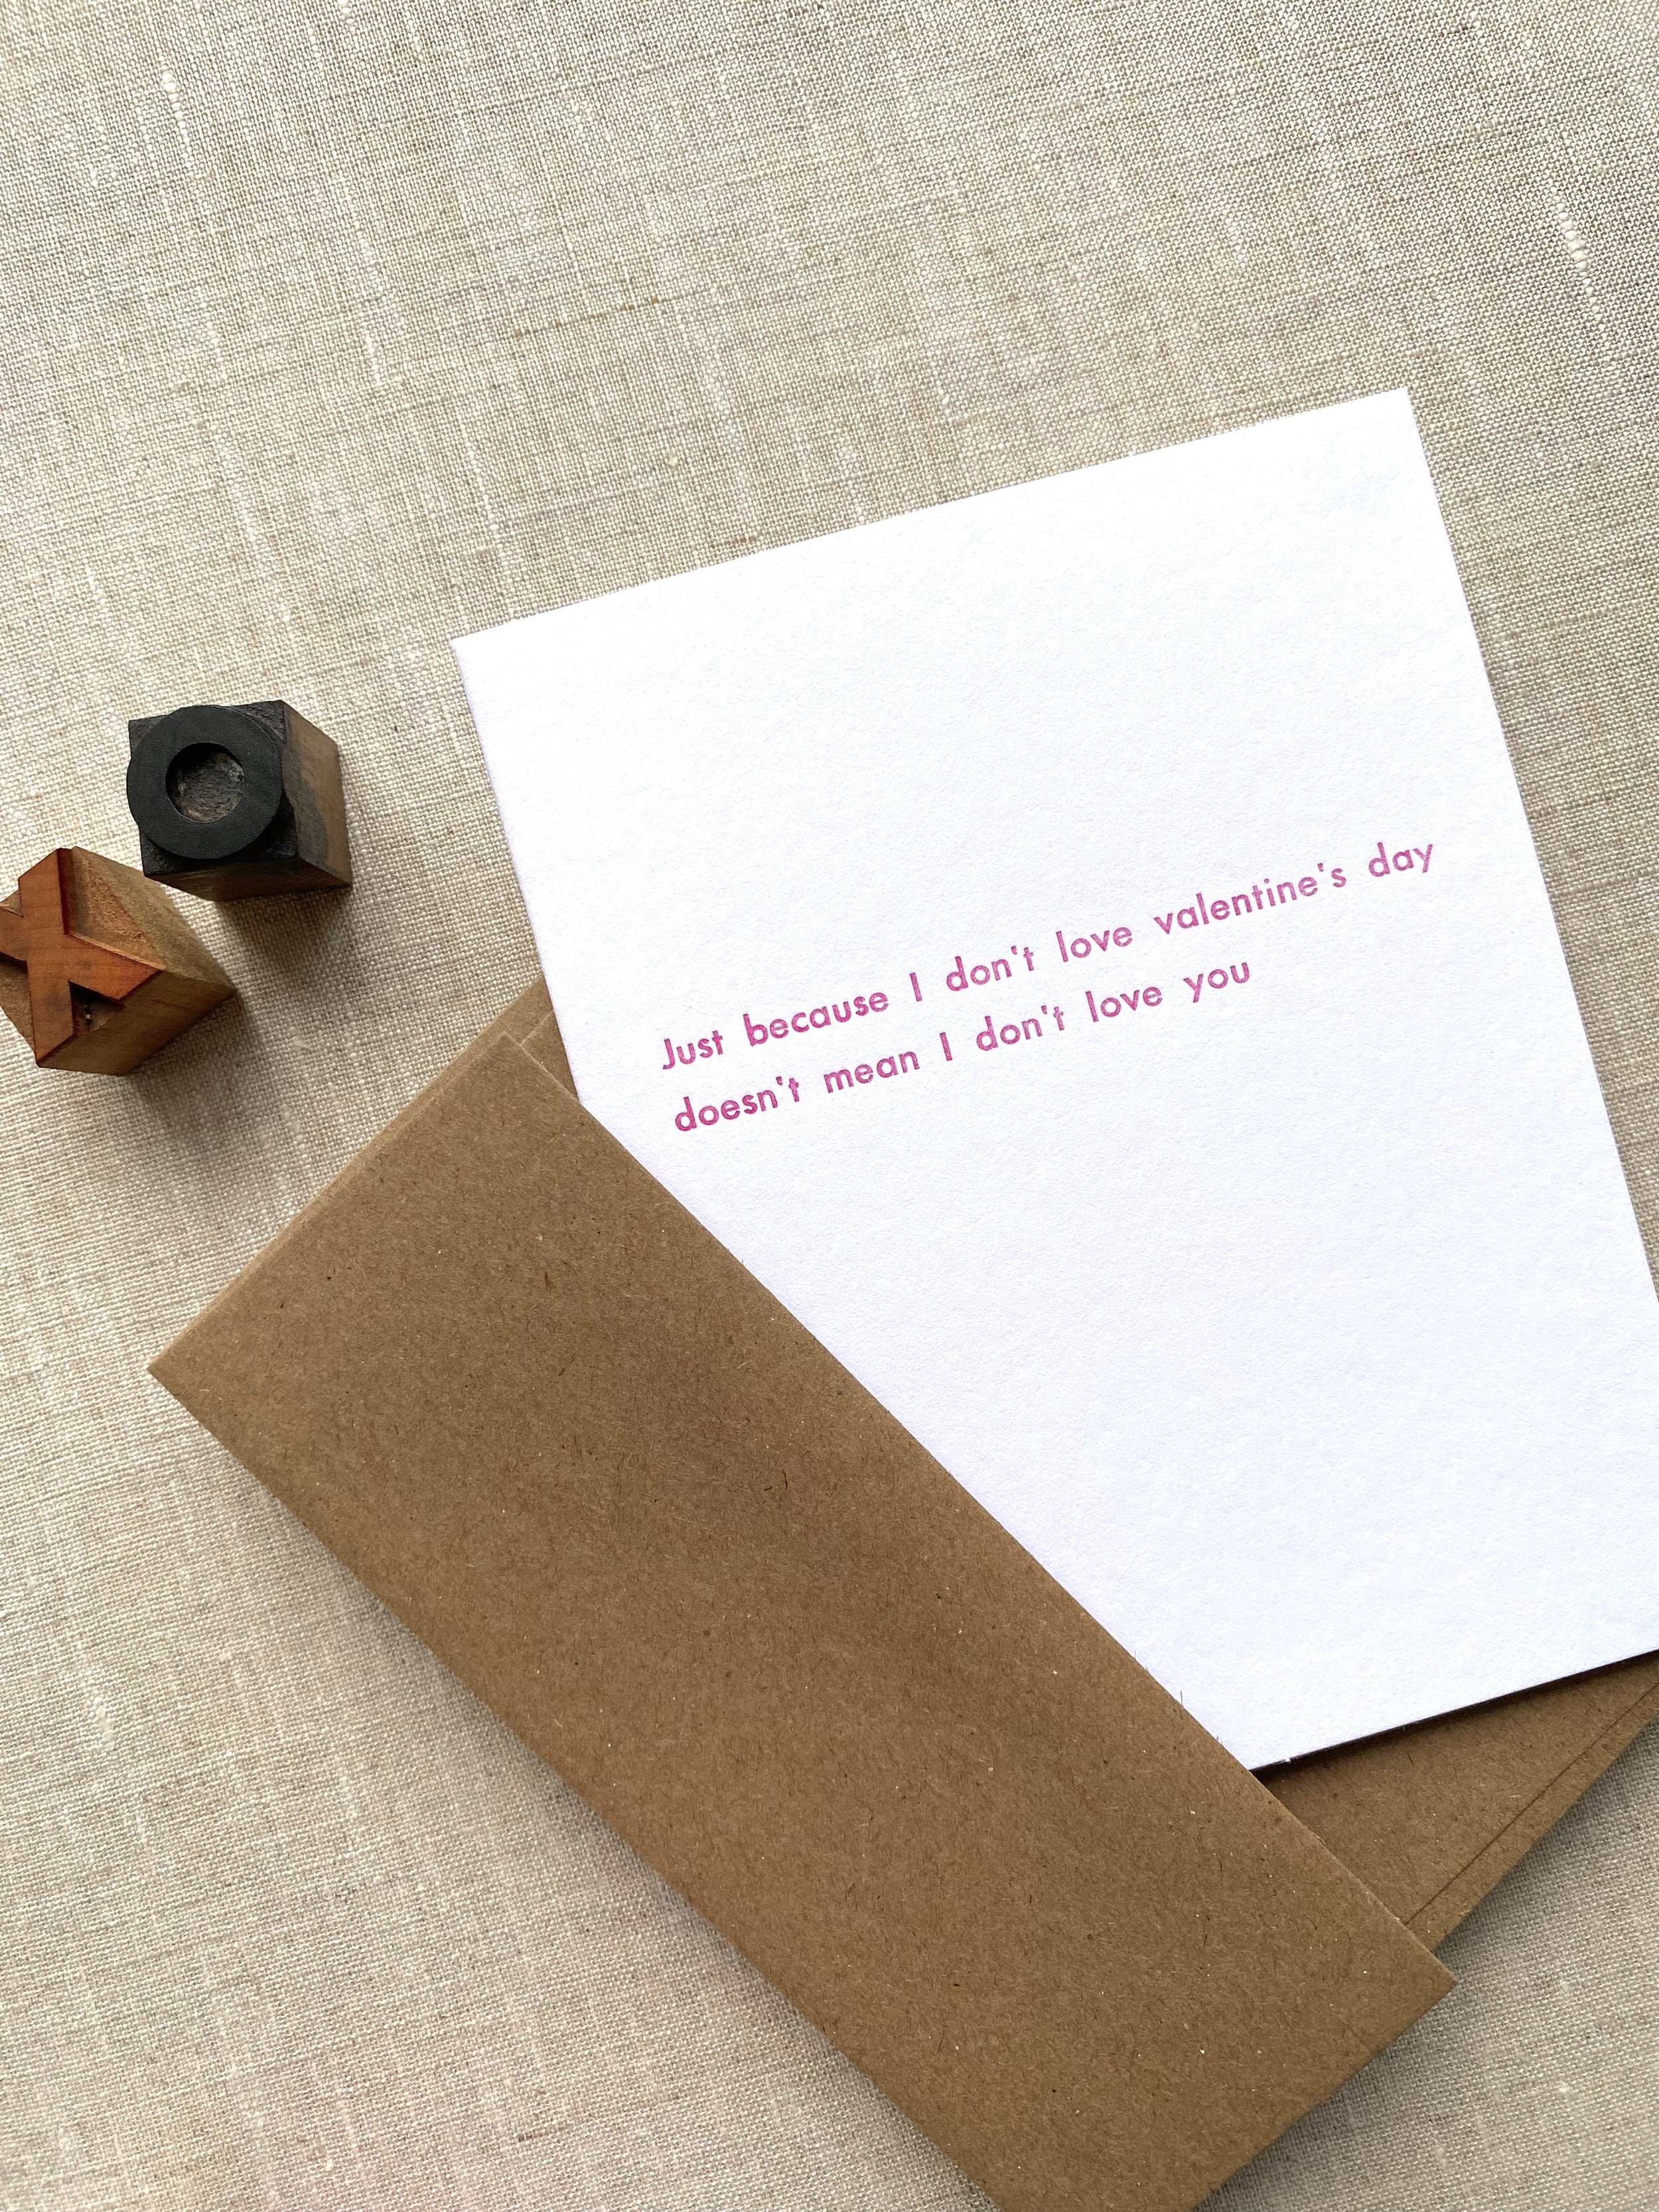 Just because I don't love valentine's day
doesn't mean I don't love you
O
X